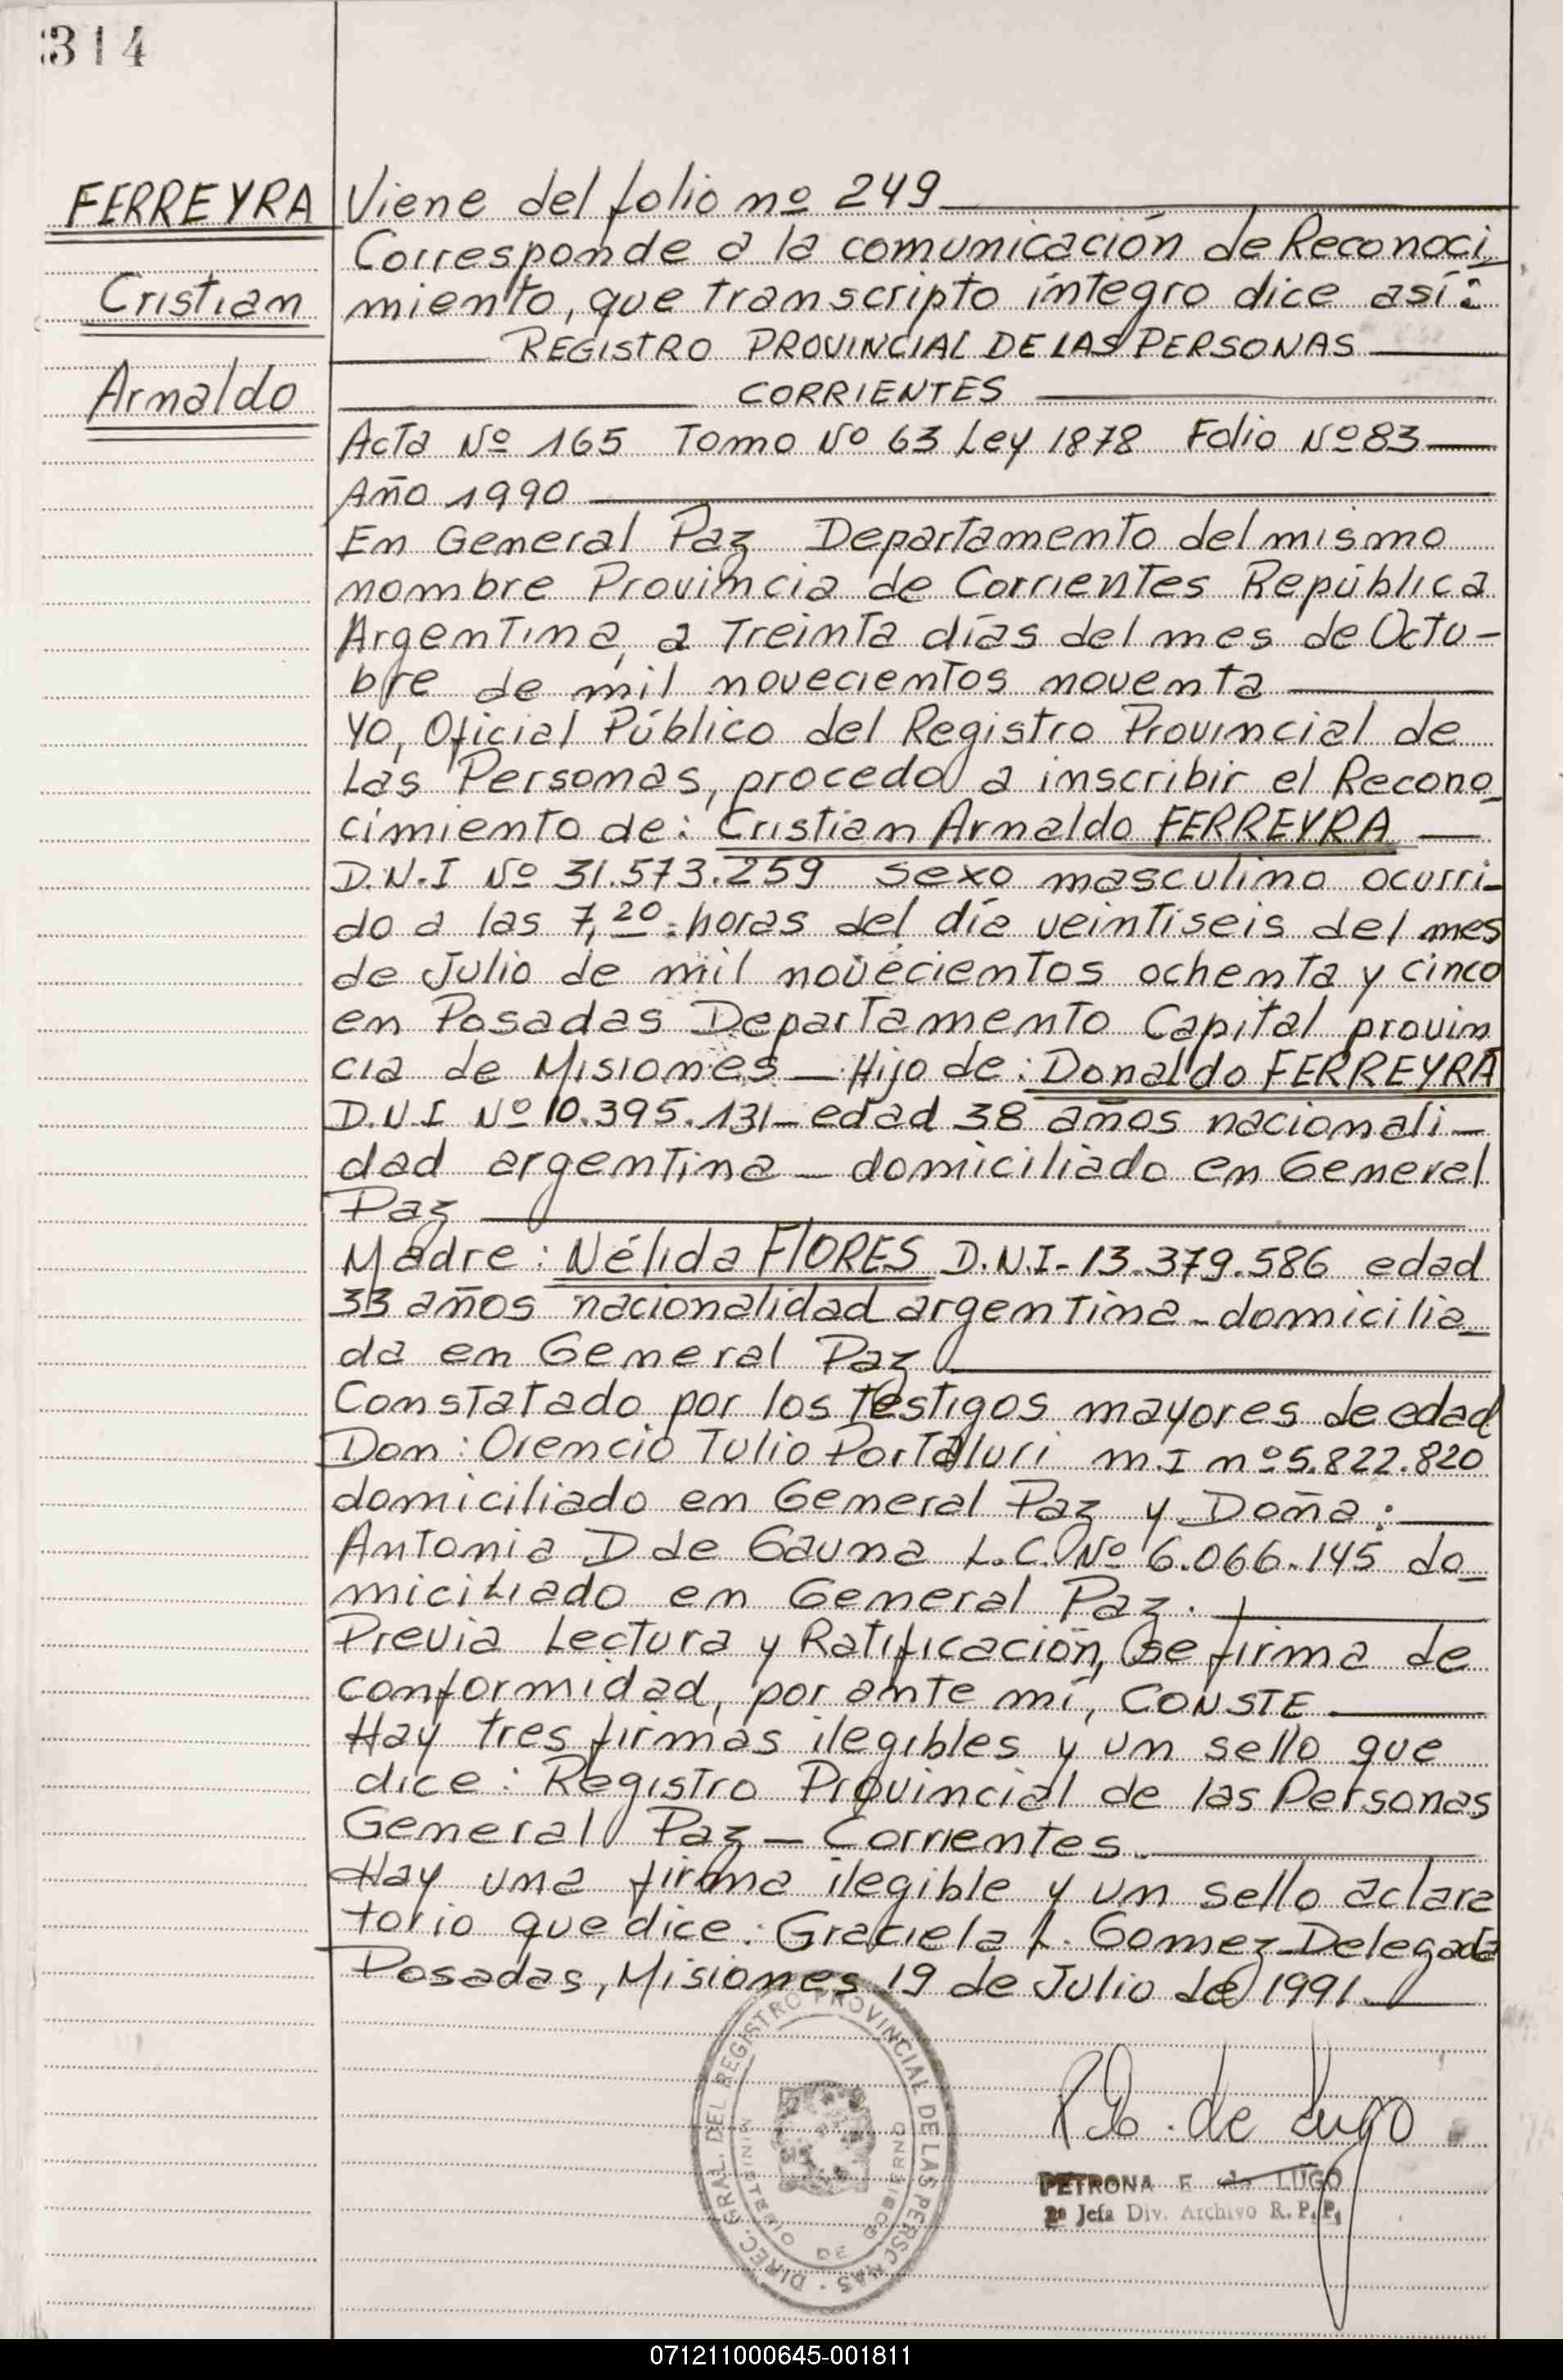 314
FERREYRA
Cristian
Arnaldo
Viene del folio nº 249
Corresponde a la comunicación de Reconoci
miento, que transcripto íntegro dice así:
REGISTRO PROVINCIAL DE LAS PERSONAS
CORRIENTES
Acta Nº 165 Tomo Nº 63 Ley 1878 Folio Nº 83
Año 1990
En General Paz Departamento del mismo
nombre Provincia de Corrientes República
Argentina, a Treinta días del mes de Octu-
bre de mil novecientos noventa
Yo, Oficial Público del Registro Provincial de
Las Personas, procedo a inscribir el Recono_
cimiento de: Cristian Arnaldo FERREYRA
D.N.I Nº 31.573.259 sexo masculino ocurri_
do a las 7,20 horas del día veintiseis del mes
de Julio de mil novecientos ochenta y cinco
en Posadas Departamento Capital provin
cia de Misiones _ Hijo de: Donaldo FERREYRA
D.N.I Nº 10.395.131_ edad 38 años nacionali_
dad argentina _ domiciliado en General
Paz
Madre: Nélida FlORES D.N.I- 13.379.586 edad
33 años nacionalidad argentina_ domicilia_
da en General Paz
Constatado por los testigos mayores de edad
Don: Orencio Tulio Portaluri M.I nº 5.822.820
domiciliado en General Paz y Doña:
Antonia D de Gauna L.C. Nº 6.066.145 do_
miciliado en General Paz.
Previa Lectura y Ratificación, se firma de
conformidad, por ante mí, CONSTE
Hay tres firmas ilegibles y un sello que
dice: Registro Provincial de las Personas
General Paz _ Corrientes.
Hay una firma ilegible y un sello aclara
torio que dice: Graciela L. Gomez_Delegada
Posadas, Misiones 19 de Julio de 1991.
DIREC. GRAL. DEL REGISTRO PROVINCIAL DE LAS PERSONAS
MINISTERIO DE GOBIERNO
de Lugo
PETRONA F. de LUGO
2ª Jefa Div. Archivo R. P. P.
071211000645-001811